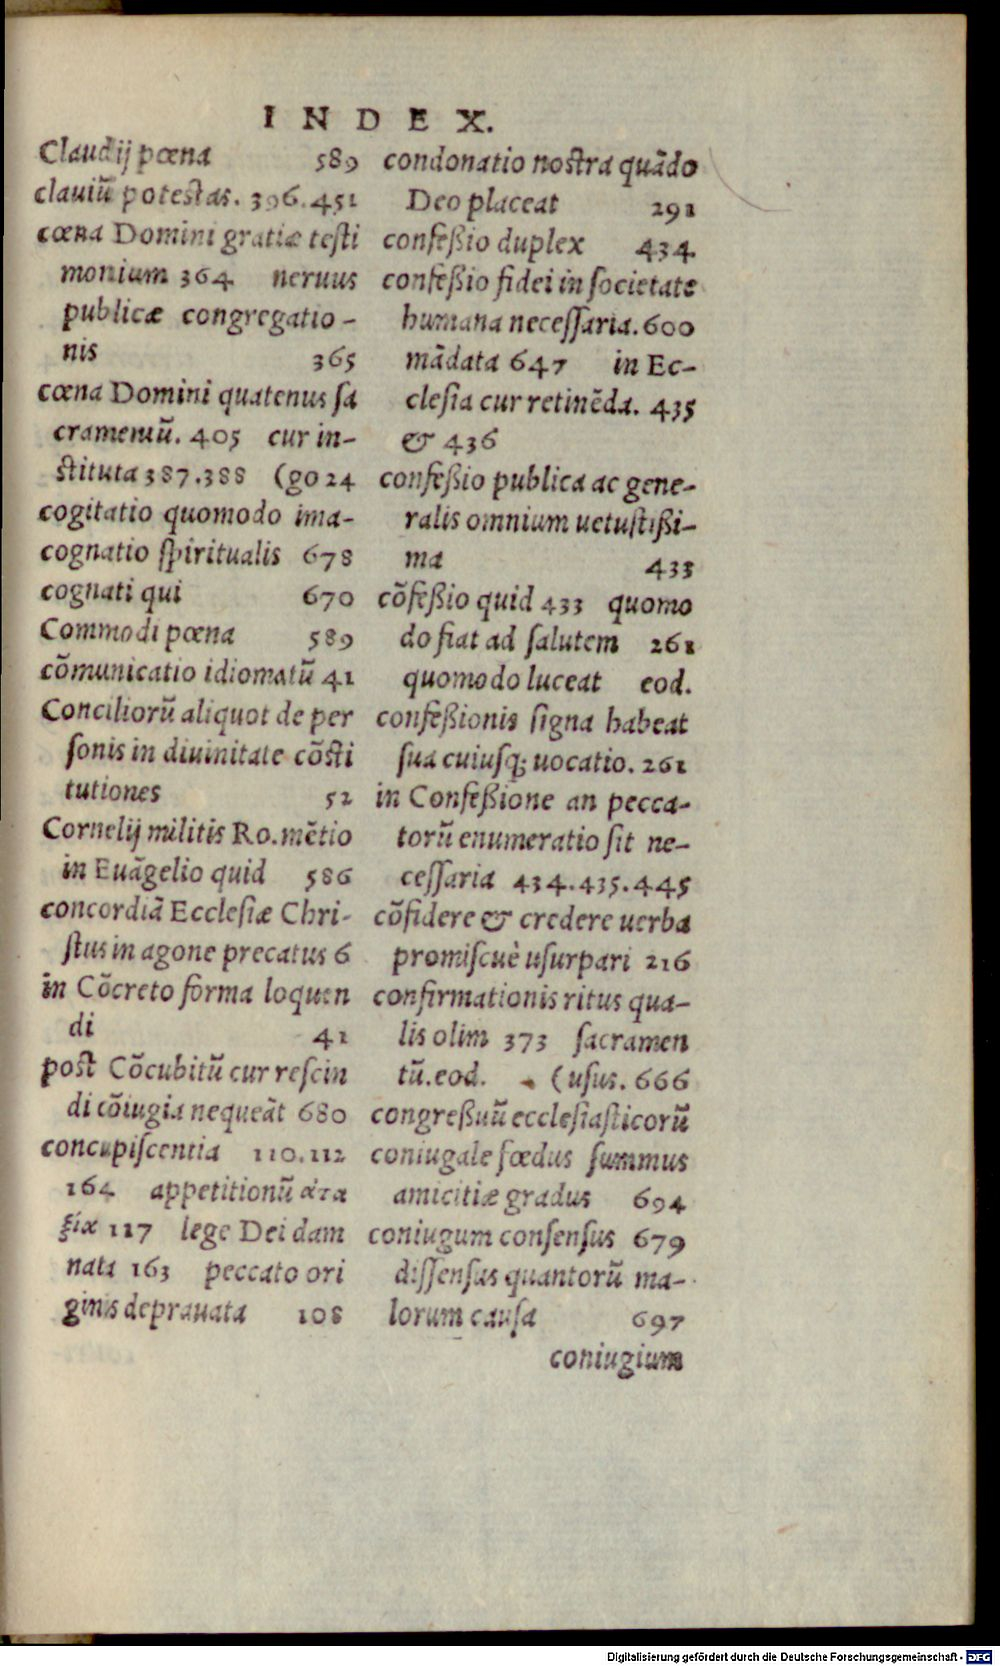 INDEX.
Claudij pœna 589
clauiũ potestas. 396.451
cœna Domini gratiæ testi
monium 364 neruus
publicæ congregatio-
nis 365
cœna Domini quatenus sa
cramentũ. 405 cur in-
stituta 387.388 (go 24
cogitatio quomodo ima-
cognatio spiritualis 678
cognati qui 670
Commodi pœna 589
cõmunicatio idiomatũ 41
Conciliorũ aliquot de per
sonis in diuinitate cõsti
tutiones 52
Cornelij militis Ro. mẽtio
in Euãgelio quid 586
concordiã Ecclesiæ Chri-
stus in agone precatus 6
in Cõcreto forma loquen
di 41
post Cõcubitũ cur rescin
di cõiugia nequeãt 680
concupiscentia 110.112
164 appetitionũ ἀτα
ξία 117 lege Dei dam
nata 163 peccato ori
ginis deprauata 108
condonatio nostra quãdo
Deo placeat 291
confeßio duplex 434
confeßio fidei in societate
humana necessaria. 600
mãdata 647 in Ec-
clesia cur retinẽda. 435
& 436
confeßio publica ac gene-
ralis omnium uetustißi-
ma 433
cõfeßio quid 433 quomo
do fiat ad salutem 261
quomodo luceat eod.
confeßionis signa habeat
sua cuiusq; uocatio. 261
in Confeßione an pecca-
torũ enumeratio sit ne-
cessaria 434.435.445
cõfidere & credere uerba
promiscuè usurpari 216
confirmationis ritus qua-
lis olim 373 sacramen
tũ. eod. (usus. 666
congreßuũ ecclesiasticorũ
coniugale fœdus summus
amicitiæ gradus 694
coniugum consensus 679
dissensus quantorũ ma-
lorum causa 697
coniugium
Digitalisierung gefördert durch die Deutsche Forschungsgemeinschaft - DFG